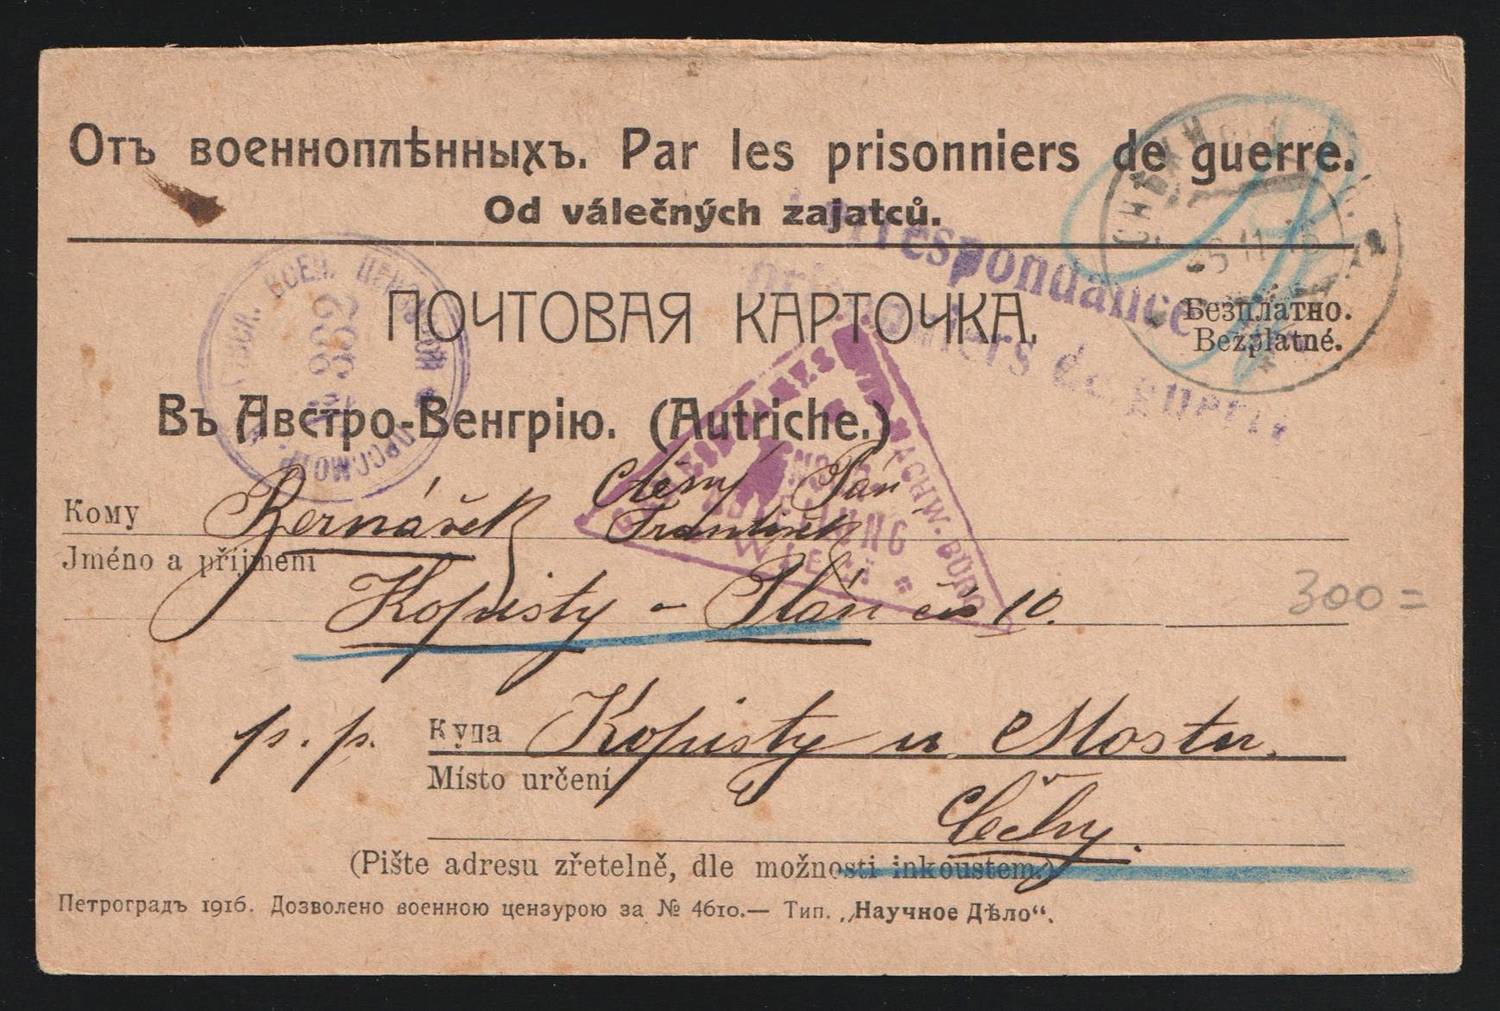 Отъ военноплѣнныхъ. Par les prisonniers de guerre.
Od válečných zajatců.
Correspondance
prisonniers de guerre
ПОЧТОВАЯ КАРТОЧКА.
Безплатно.
Bezplatné.
Въ Австро-Венгрію. (Autriche.)
Pán
Кому Bernášek František
Jméno a příjmení
Kopisty - Plán čís 10.
300 =
p. p. Куда Kopisty u Mostu.
Místo určení
Čechy.
(Pište adresu zřetelně, dle možnosti inkoustem.)
Петроградъ 1916. Дозволено военною цензурою за № 4610.— Тип. „Научное Дѣло“.